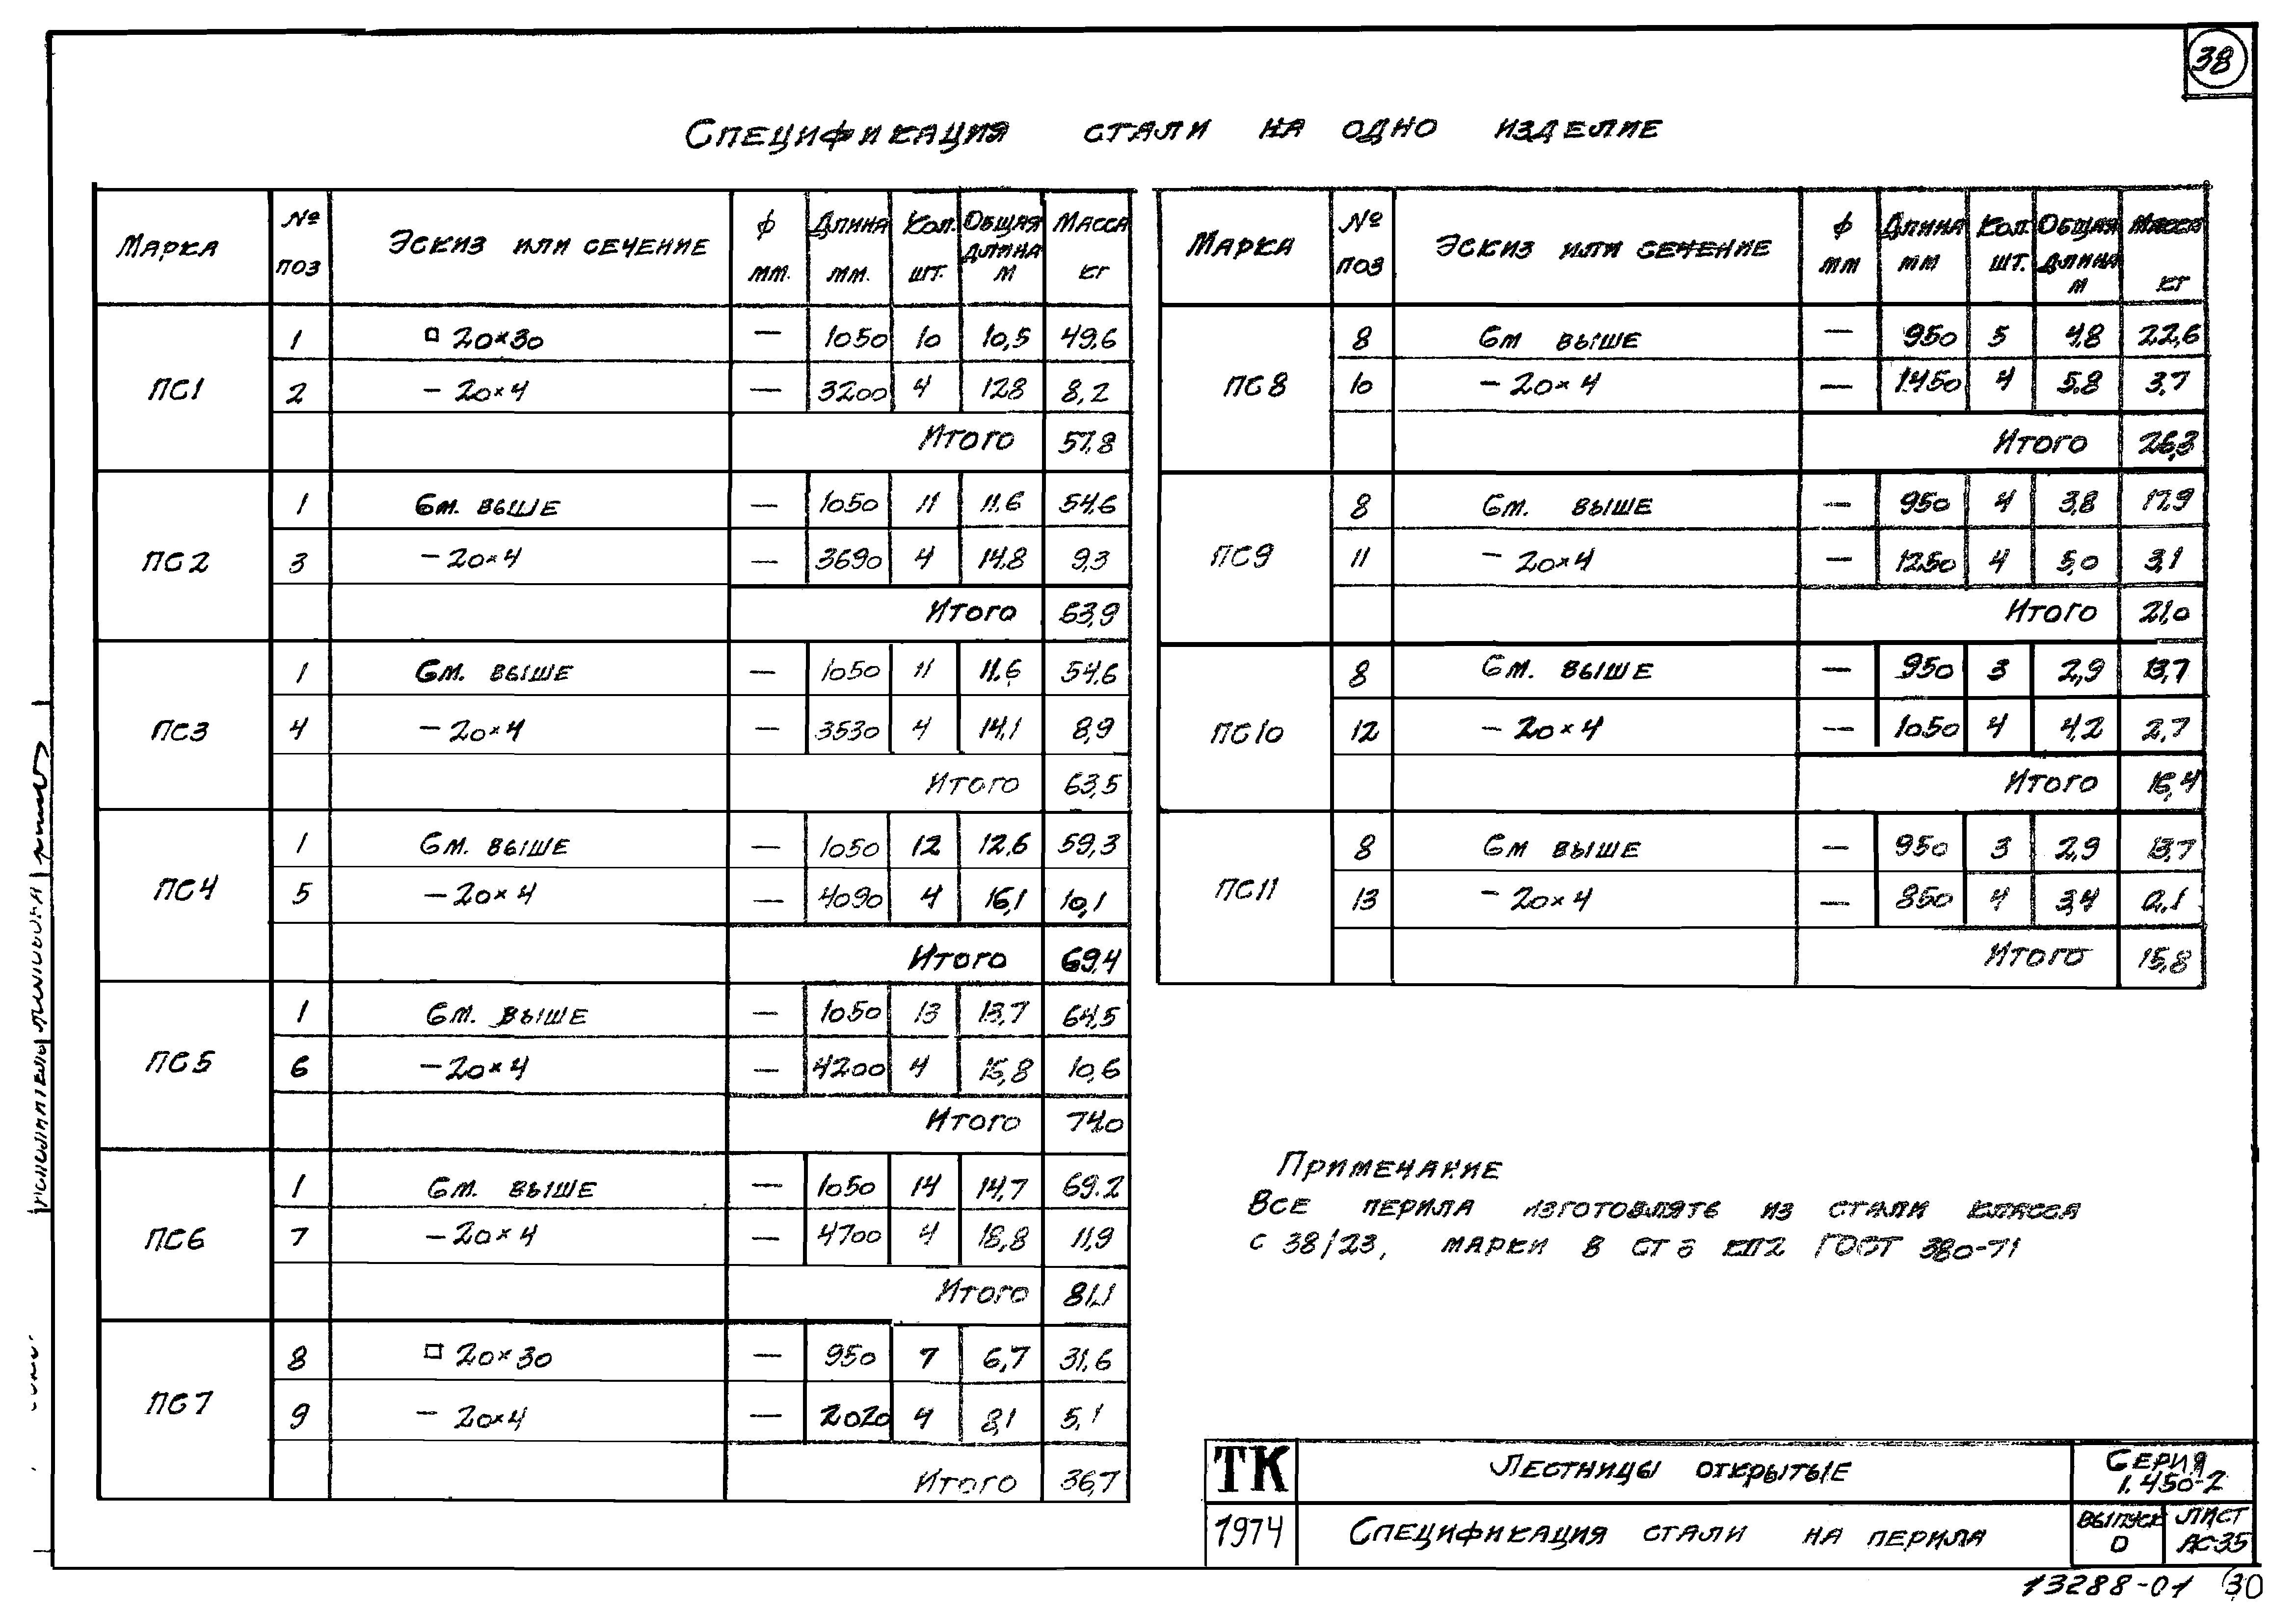 38
Спецификация стали на одно изделие
Марка № поз Эскиз или сечение ф мм. Длина мм. Кол. шт. Общая длина м Масса кг
ПС1
1 □ 20×30 — 1050 10 10,5 49,6
2 - 20×4 — 3200 4 12,8 8,2
Итого 57,8
ПС2
1 См. выше — 1050 11 11,6 54,6
3 - 20×4 — 3690 4 14,8 9,3
Итого 63,9
ПС3
1 См. выше — 1050 11 11,6 54,6
4 - 20×4 — 3530 4 14,1 8,9
Итого 63,5
ПС4
1 См. выше — 1050 12 12,6 59,3
5 - 20×4 — 4090 4 16,1 10,1
Итого 69,4
ПС5
1 См. выше — 1050 13 13,7 64,5
6 - 20×4 — 4200 4 16,8 10,6
Итого 74,0
ПС6
1 См. выше — 1050 14 14,7 69.2
7 - 20×4 — 4700 4 18,8 11,9
Итого 81,1
ПС7
8 □ 20×30 — 950 7 6,7 31,6
9 - 20×4 — 2020 4 8,1 5,1
Итого 36,7
Марка № поз Эскиз или сечение ф мм Длина мм Кол. шт. Общая длина м Масса кг
ПС8
8 См выше — 950 5 4,8 22,6
10 - 20×4 — 1450 4 5,8 3,7
Итого 26,3
ПС9
8 См. выше — 950 4 3,8 17,9
11 - 20×4 — 1250 4 5,0 3,1
Итого 21,0
ПС10
8 См. выше — 950 3 2,9 13,7
12 - 20×4 — 1050 4 4,2 2,7
Итого 16,4
ПС11
8 См выше — 950 3 2,9 13,7
13 - 20×4 — 850 4 3,4 2,1
Итого 15,8
Примечание
Все перила изготовлять из стали класса
С 38/23, марки В Ст 3 КП2 ГОСТ 380-71
ТК Лестницы открытые Серия 1.450-2
1974 Спецификация стали на перила Выпуск 0 Лист АС-35
13288-01 30